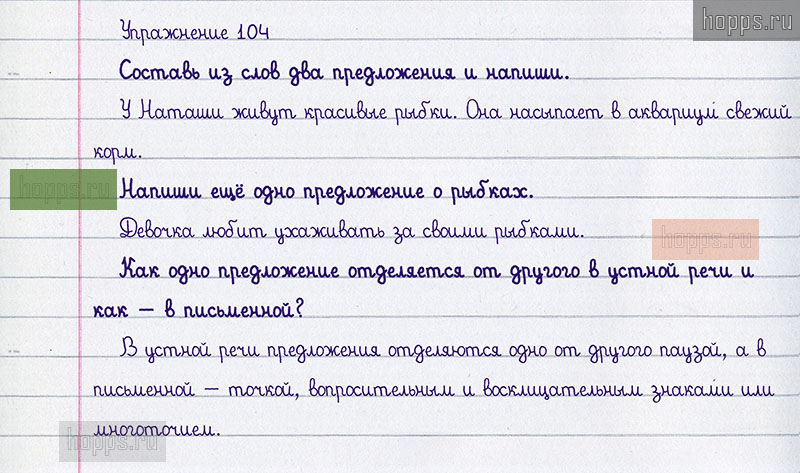 hopps.ru
Упражнение 104
Составь из слов два предложения и напиши.
У Наташи живут красивые рыбки. Она насыпает в аквариум свежий
корм.
hopps.ru
Напиши ещё одно предложение о рыбках.
Девочка любит ухаживать за своими рыбками.
hopps.ru
Как одно предложение отделяется от другого в устной речи и
как — в письменной?
В устной речи предложения отделяются одно от другого паузой, а в
письменной — точкой, вопросительным и восклицательным знаками или
многоточием.
hopps.ru